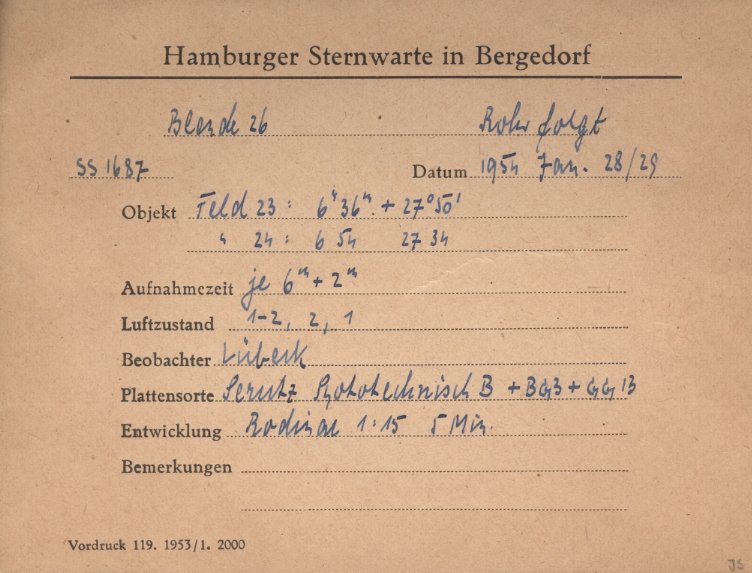 Hamburger Sternwarte in Bergedorf
Blende 26 Rohr folgt
SS 1687 Datum 1954 Jan. 28/29
Objekt Feld 23 : 6ʰ 36ᵐ. + 27° 50'
" 24 : 6 54 27 34
Aufnahmezeit je 6ᵐ + 2ᵐ
Luftzustand 1-2, 2, 1
Beobachter Lübeck
Plattensorte Perutz Phototechnisch B + BG3 + GG 13
Entwicklung Rodinal 1:15 5 Min.
Bemerkungen
Vordruck 119. 1953/1. 2000
JS